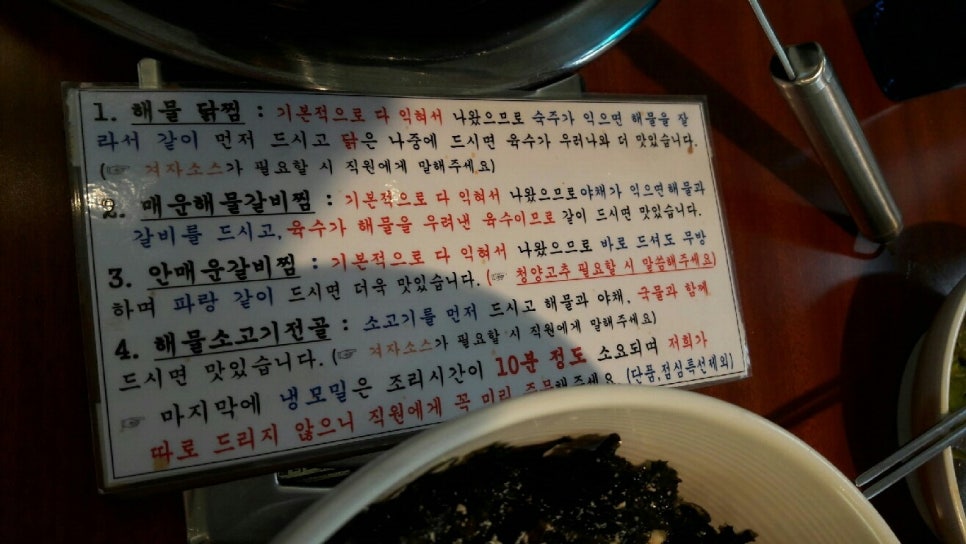 1. 해물 닭찜 : 기본적으로 다 익혀서 나왔으므로 숙주가 익으면 해물을 잘
라서 같이 먼저 드시고 닭은 나중에 드시면 육수가 우러나와 더 맛있습니다.
(☞ 겨자소스가 필요할 시 직원에게 말해주세요)
2. 매운해물갈비찜 : 기본적으로 다 익혀서 나왔으므로야채가 익으면해물과
갈비를 드시고, 육수가 해물을 우려낸 육수이므로 같이 드시면 맛있습니다.
3. 안매운갈비찜 : 기본적으로 다 익혀서 나왔으므로 바로 드셔도 무방
하며 파랑 같이 드시면 더욱 맛있습니다. (☞ 청양고추 필요할 시 말씀해주세요)
4. 해물소고기전골 : 소고기를 먼저 드시고 해물과 야채, 국물과 함께
드시면 맛있습니다. (☞ 겨자소스가 필요할 시 직원에게 말해주세요)
☞ 마지막에 냉모밀은 조리시간이 10분 정도 소요되며 저희가
따로 드리지 않으니 직원에게 꼭 미리 주문해주세요 (단품,점심특선제외)